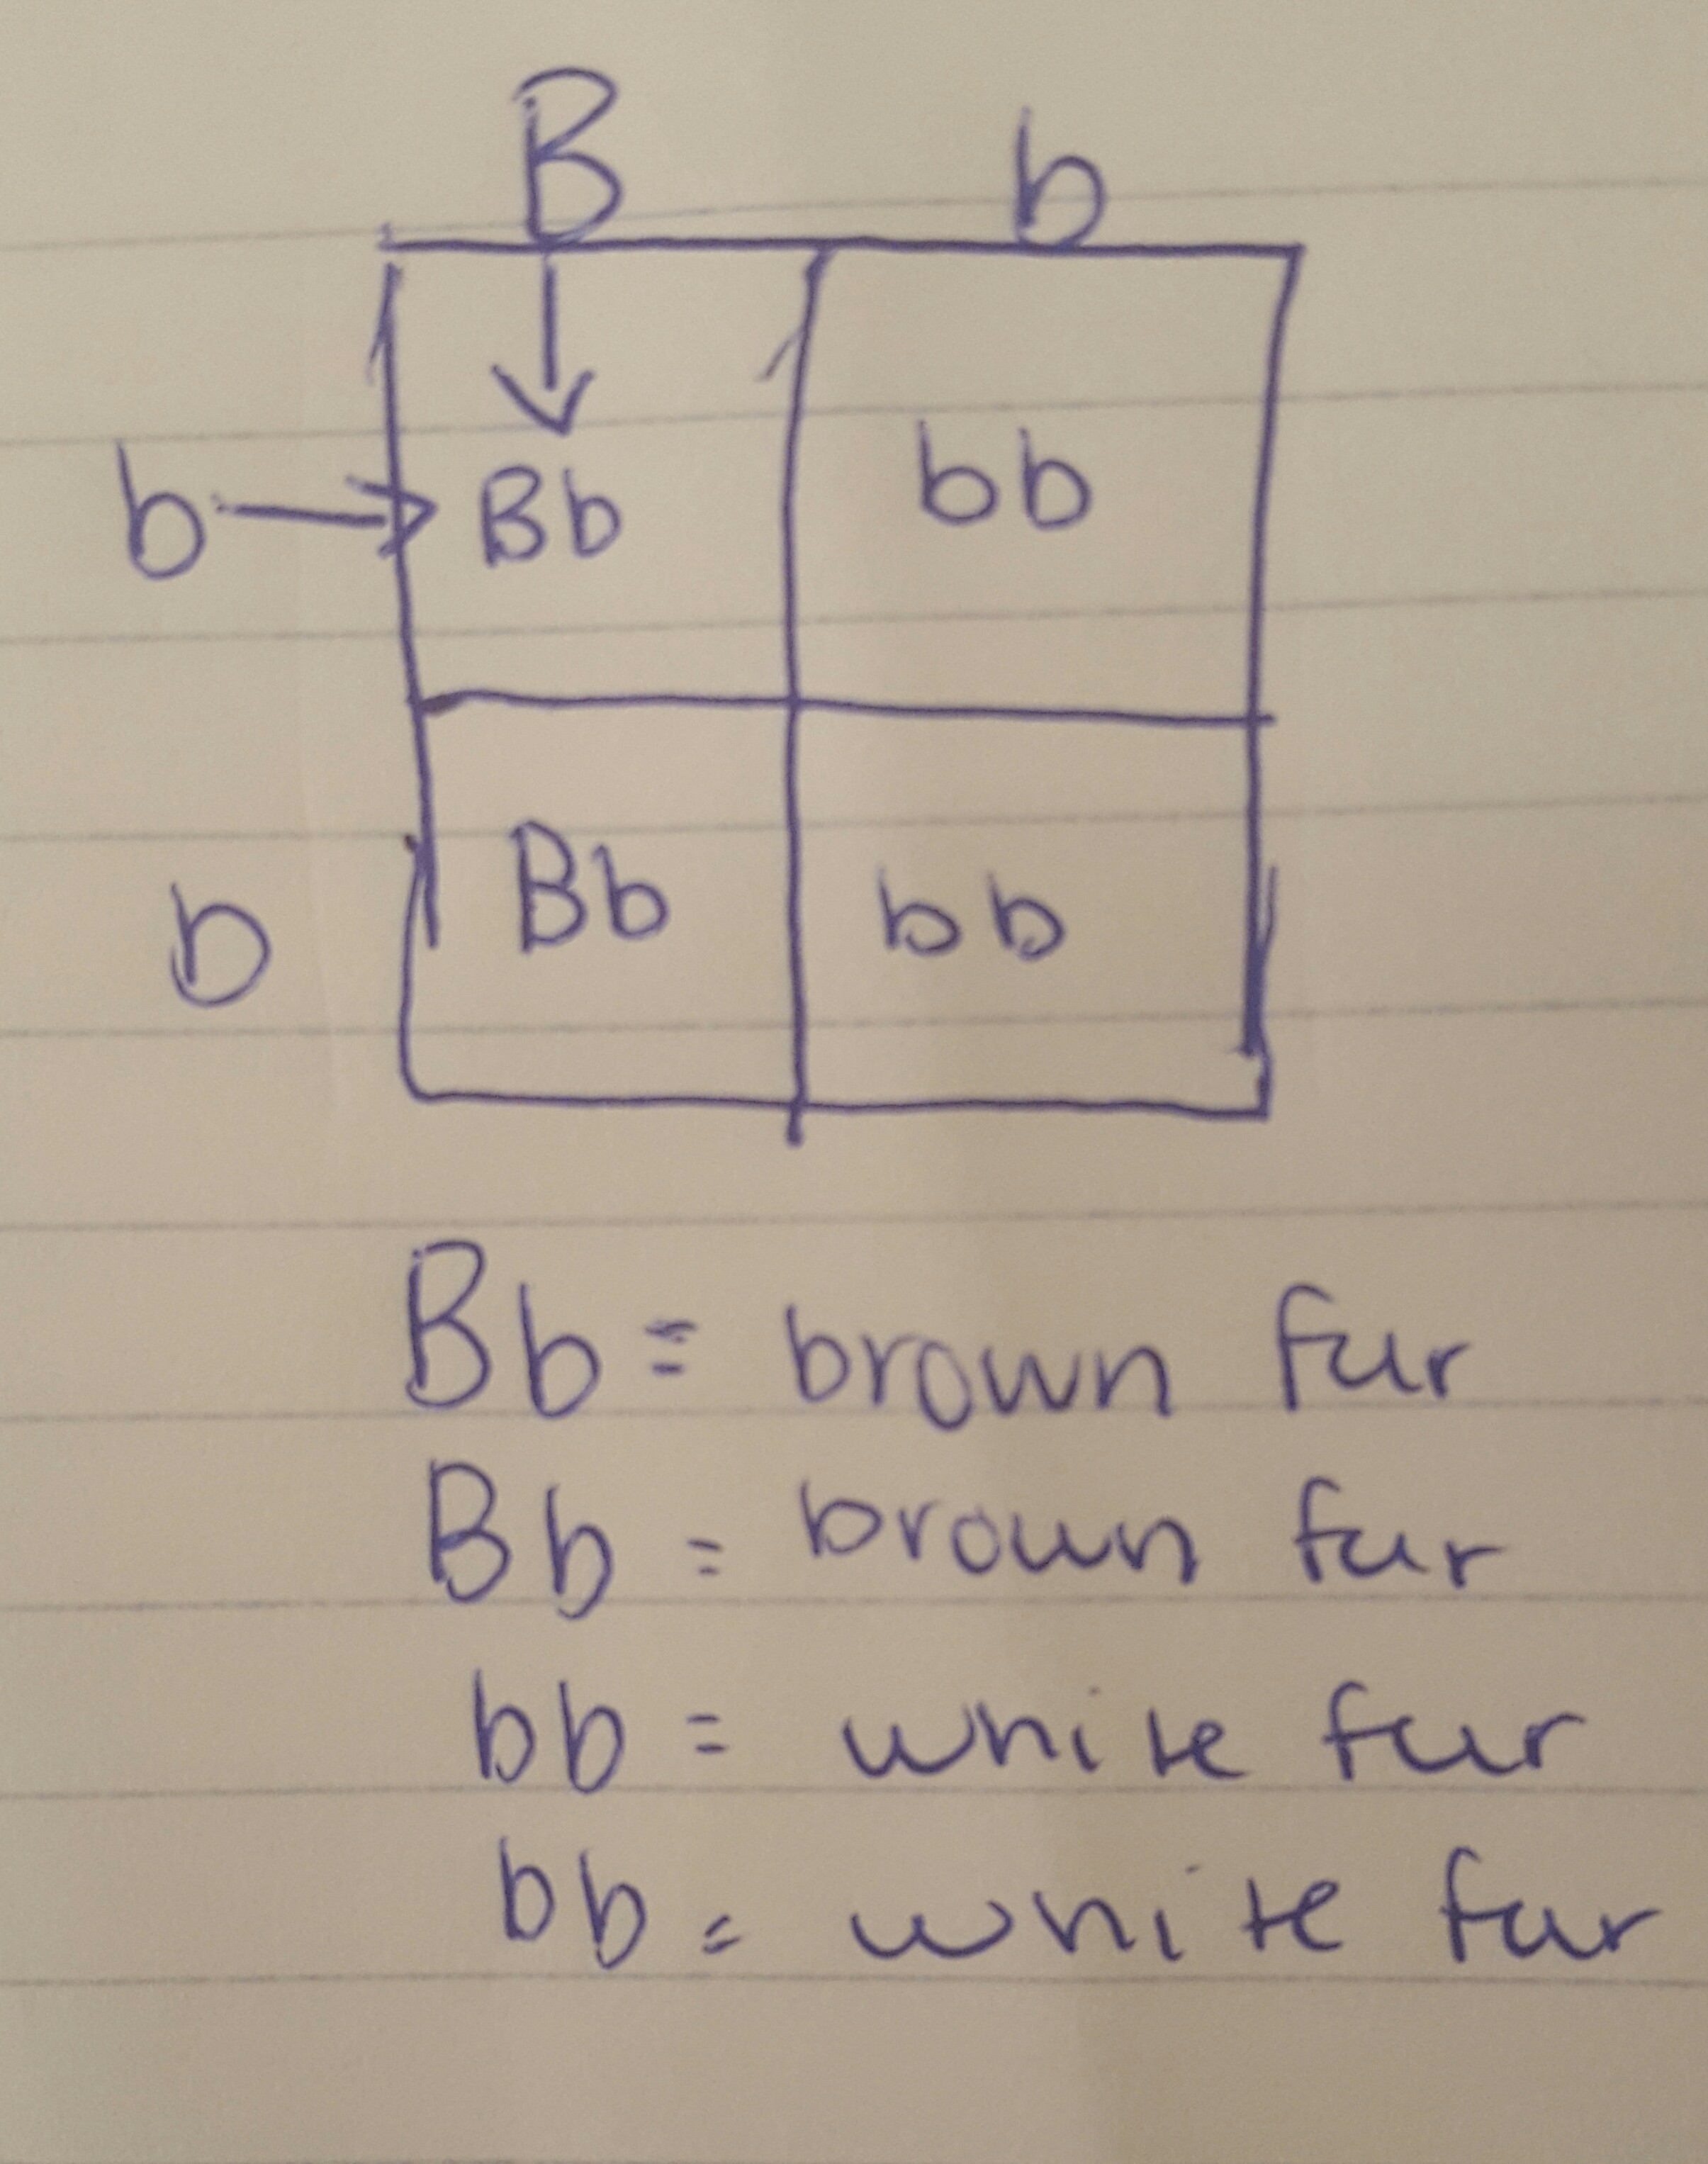 B b
b Bb bb
b Bb bb
Bb = brown fur
Bb = brown fur
bb = white fur
bb = white fur